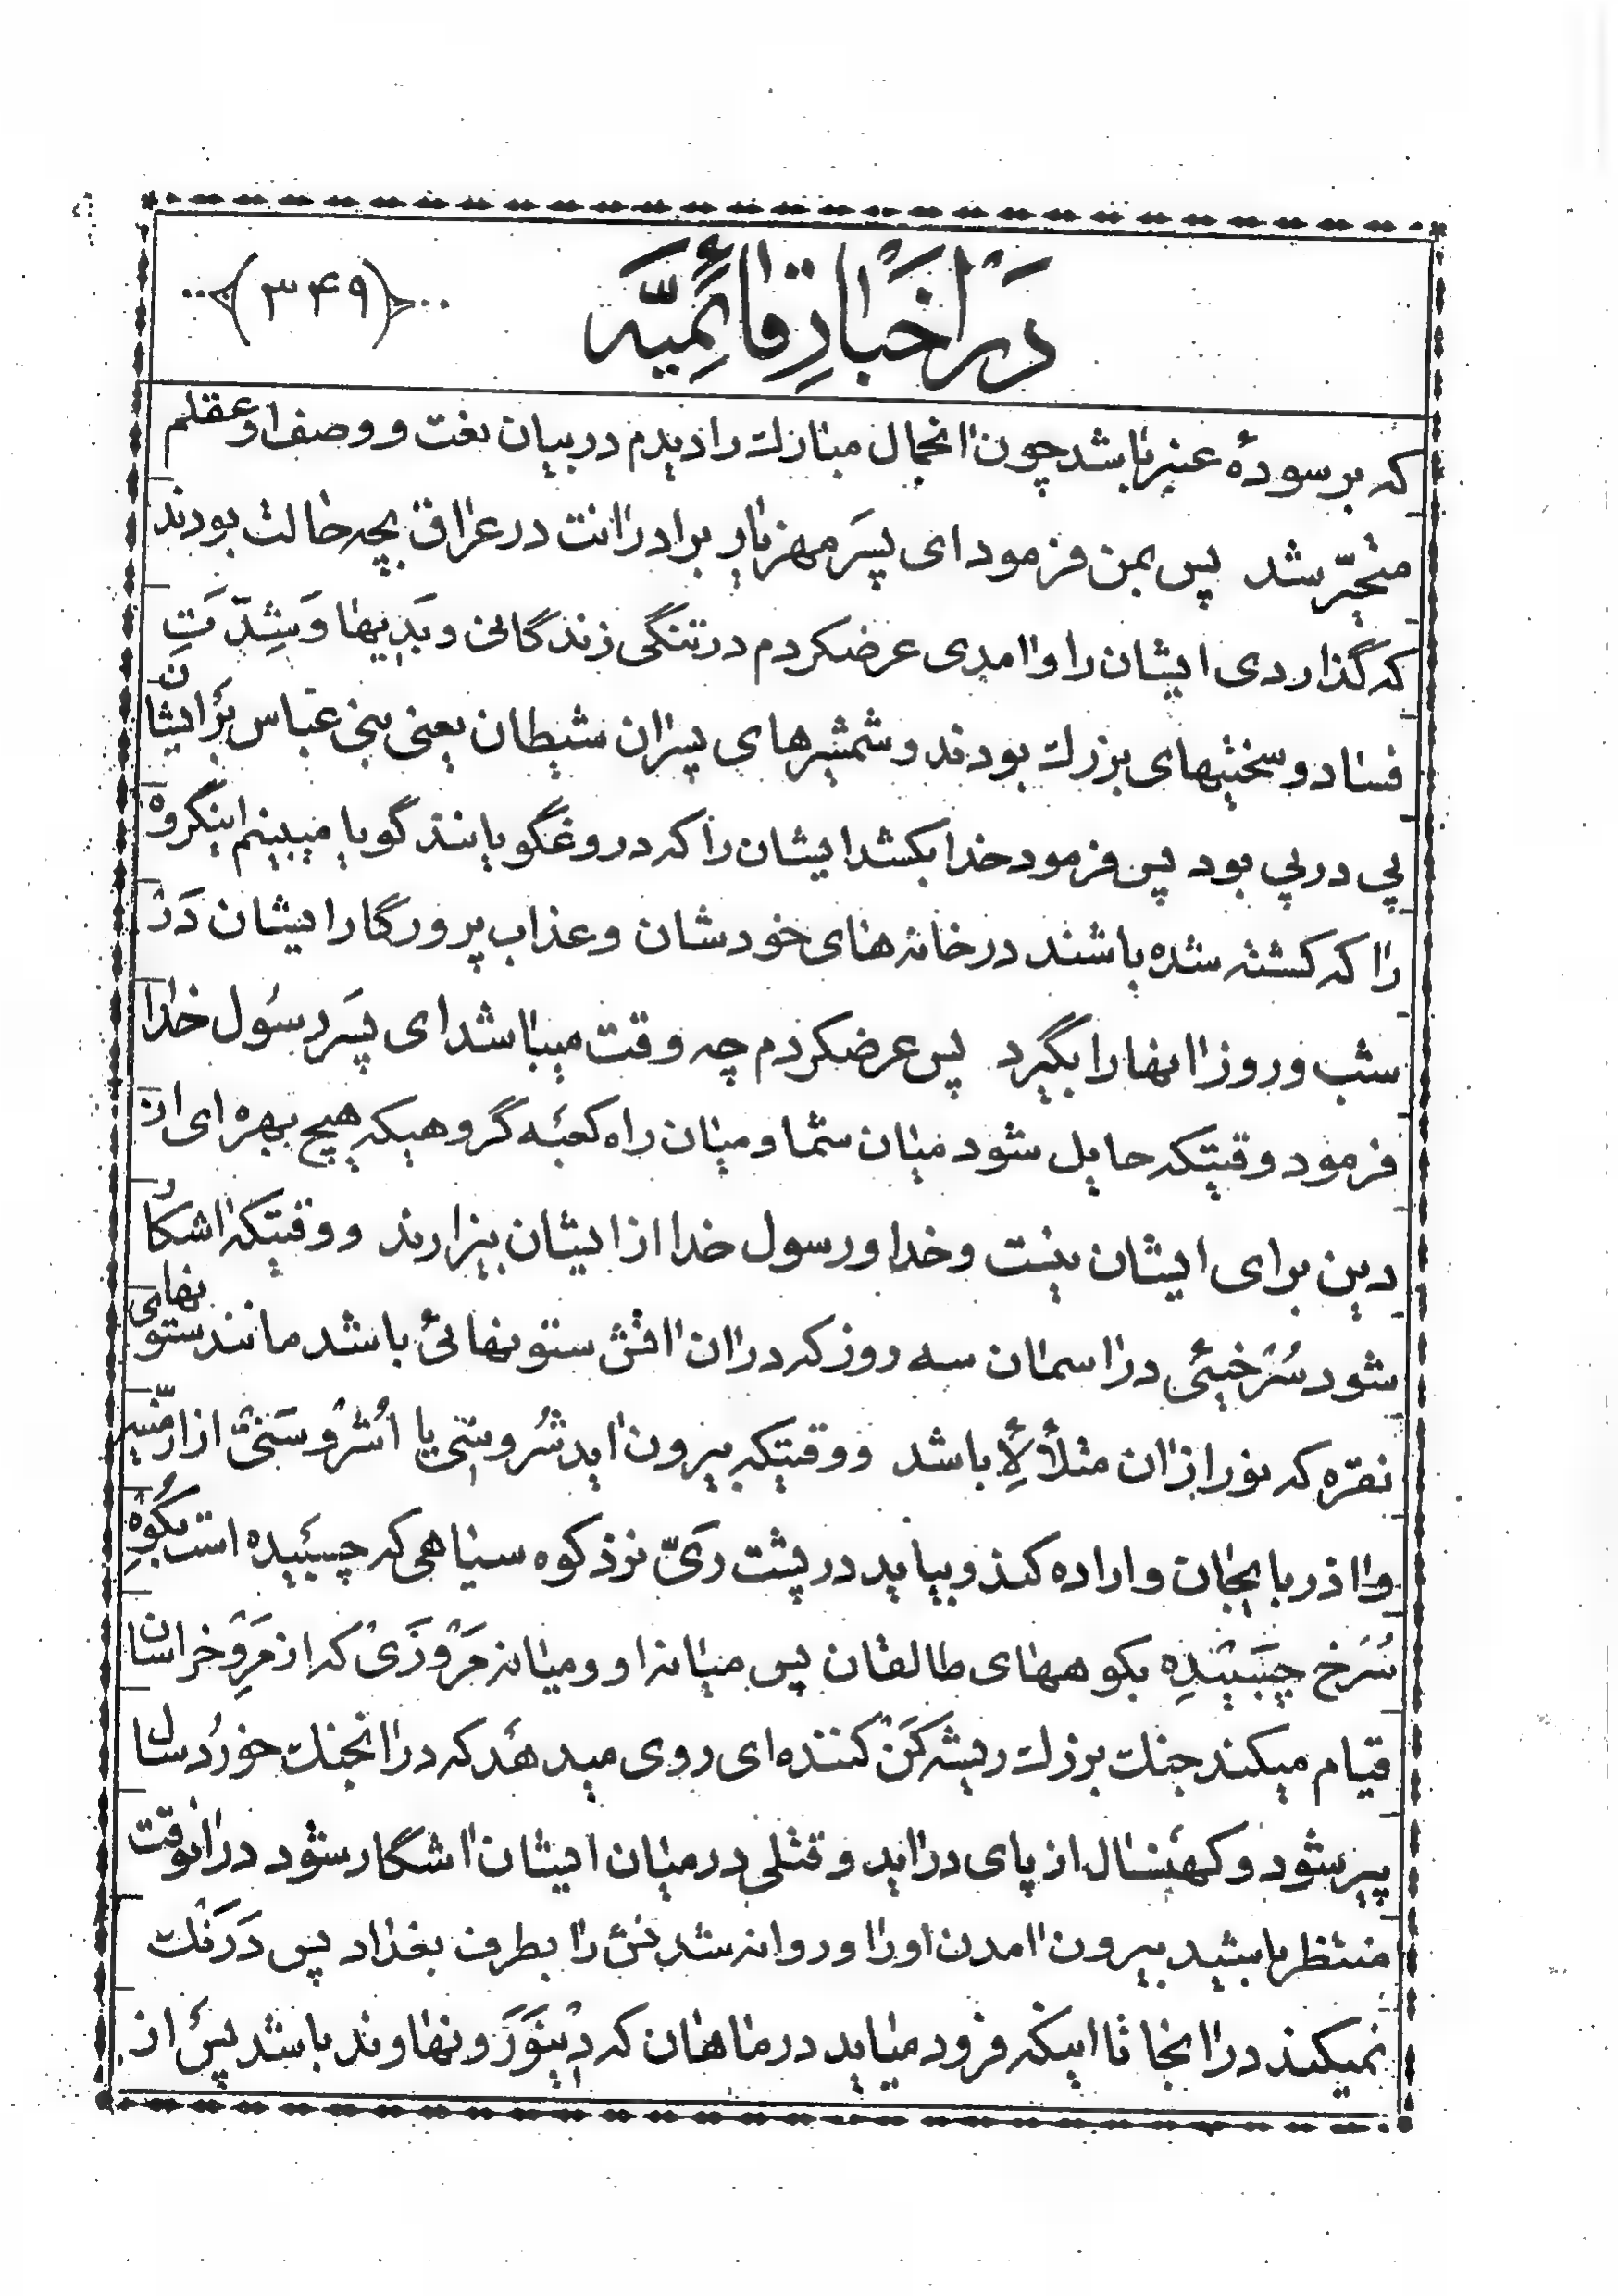 دَر اَخبارِ قائِمِیَّه
(۳۴۹)
که بر سودهٔ عنبر باشد چون آنجمال مبارك را دیدم در بیان نعت و وصف او عقلم
متحیّر شد پس بمن فرمود ای پسَر مهزیار برادرانت در عراق بچه حالت بودند
که گذاردی ایشان را و آمدی عرضکردم در تنگی زندگانی و بَدیها وَ شِدّتِ
فساد و سختیهای بزرك بودند و شمشیرهای پسران شیطان یعنی بنی عباس بَر ایشان
پی در پی بود پس فرمود خدا بکشد ایشان را که دروغگویانند گویا میبینم اینگروه
را که کشته شده باشند در خانه های خودشان و عذاب پرورگار ایشان دَر
شب و روز آنها را بگیرد پس عرضکردم چه وقت میباشد ای پسَر رسُول خدا
فرمود وقتیکه حایل شود میان شما و میان راه کعبَه گروهیکه هیچ بهره ای از
دین برای ایشان نیست و خدا و رسول خدا از ایشان بیزارند و وقتیکه آشکار
شود سُرخیئی در آسمان سه روز که در آن آتش ستونهائی باشد مانند ستونهای
نقره که نور از آن متلألِأ باشد و وقتیکه بیرون آید شُروسَی یا اُشروُسَنیّ از ارمنیّه
و آذربایجان و اراده کند و بیاید در پشت ریّ نزد کوه سیاهی که چسبیده است بکُوهِ
سُرخ چسَبیدِه بکوههای طالقان پس میانه او و میانه مَروَزَی که از مَروِ خراسان
قیام میکند جنك بزرك ریشه کَن کننده ای روی میدهَد که در آنجنك خوردُسال
پیر شود و کهَنسال از پای در آید و قتلی در میان ایشان آشگار شود در آنوقت
منتظر باشید بیرون آمدن او را و روانه شدنش را بطرف بغداد پس دَرَنك
نمیکند در آنجا تا اینکه فرود میاید در ماهان که دینَوَر و نهاوند باشد پس از